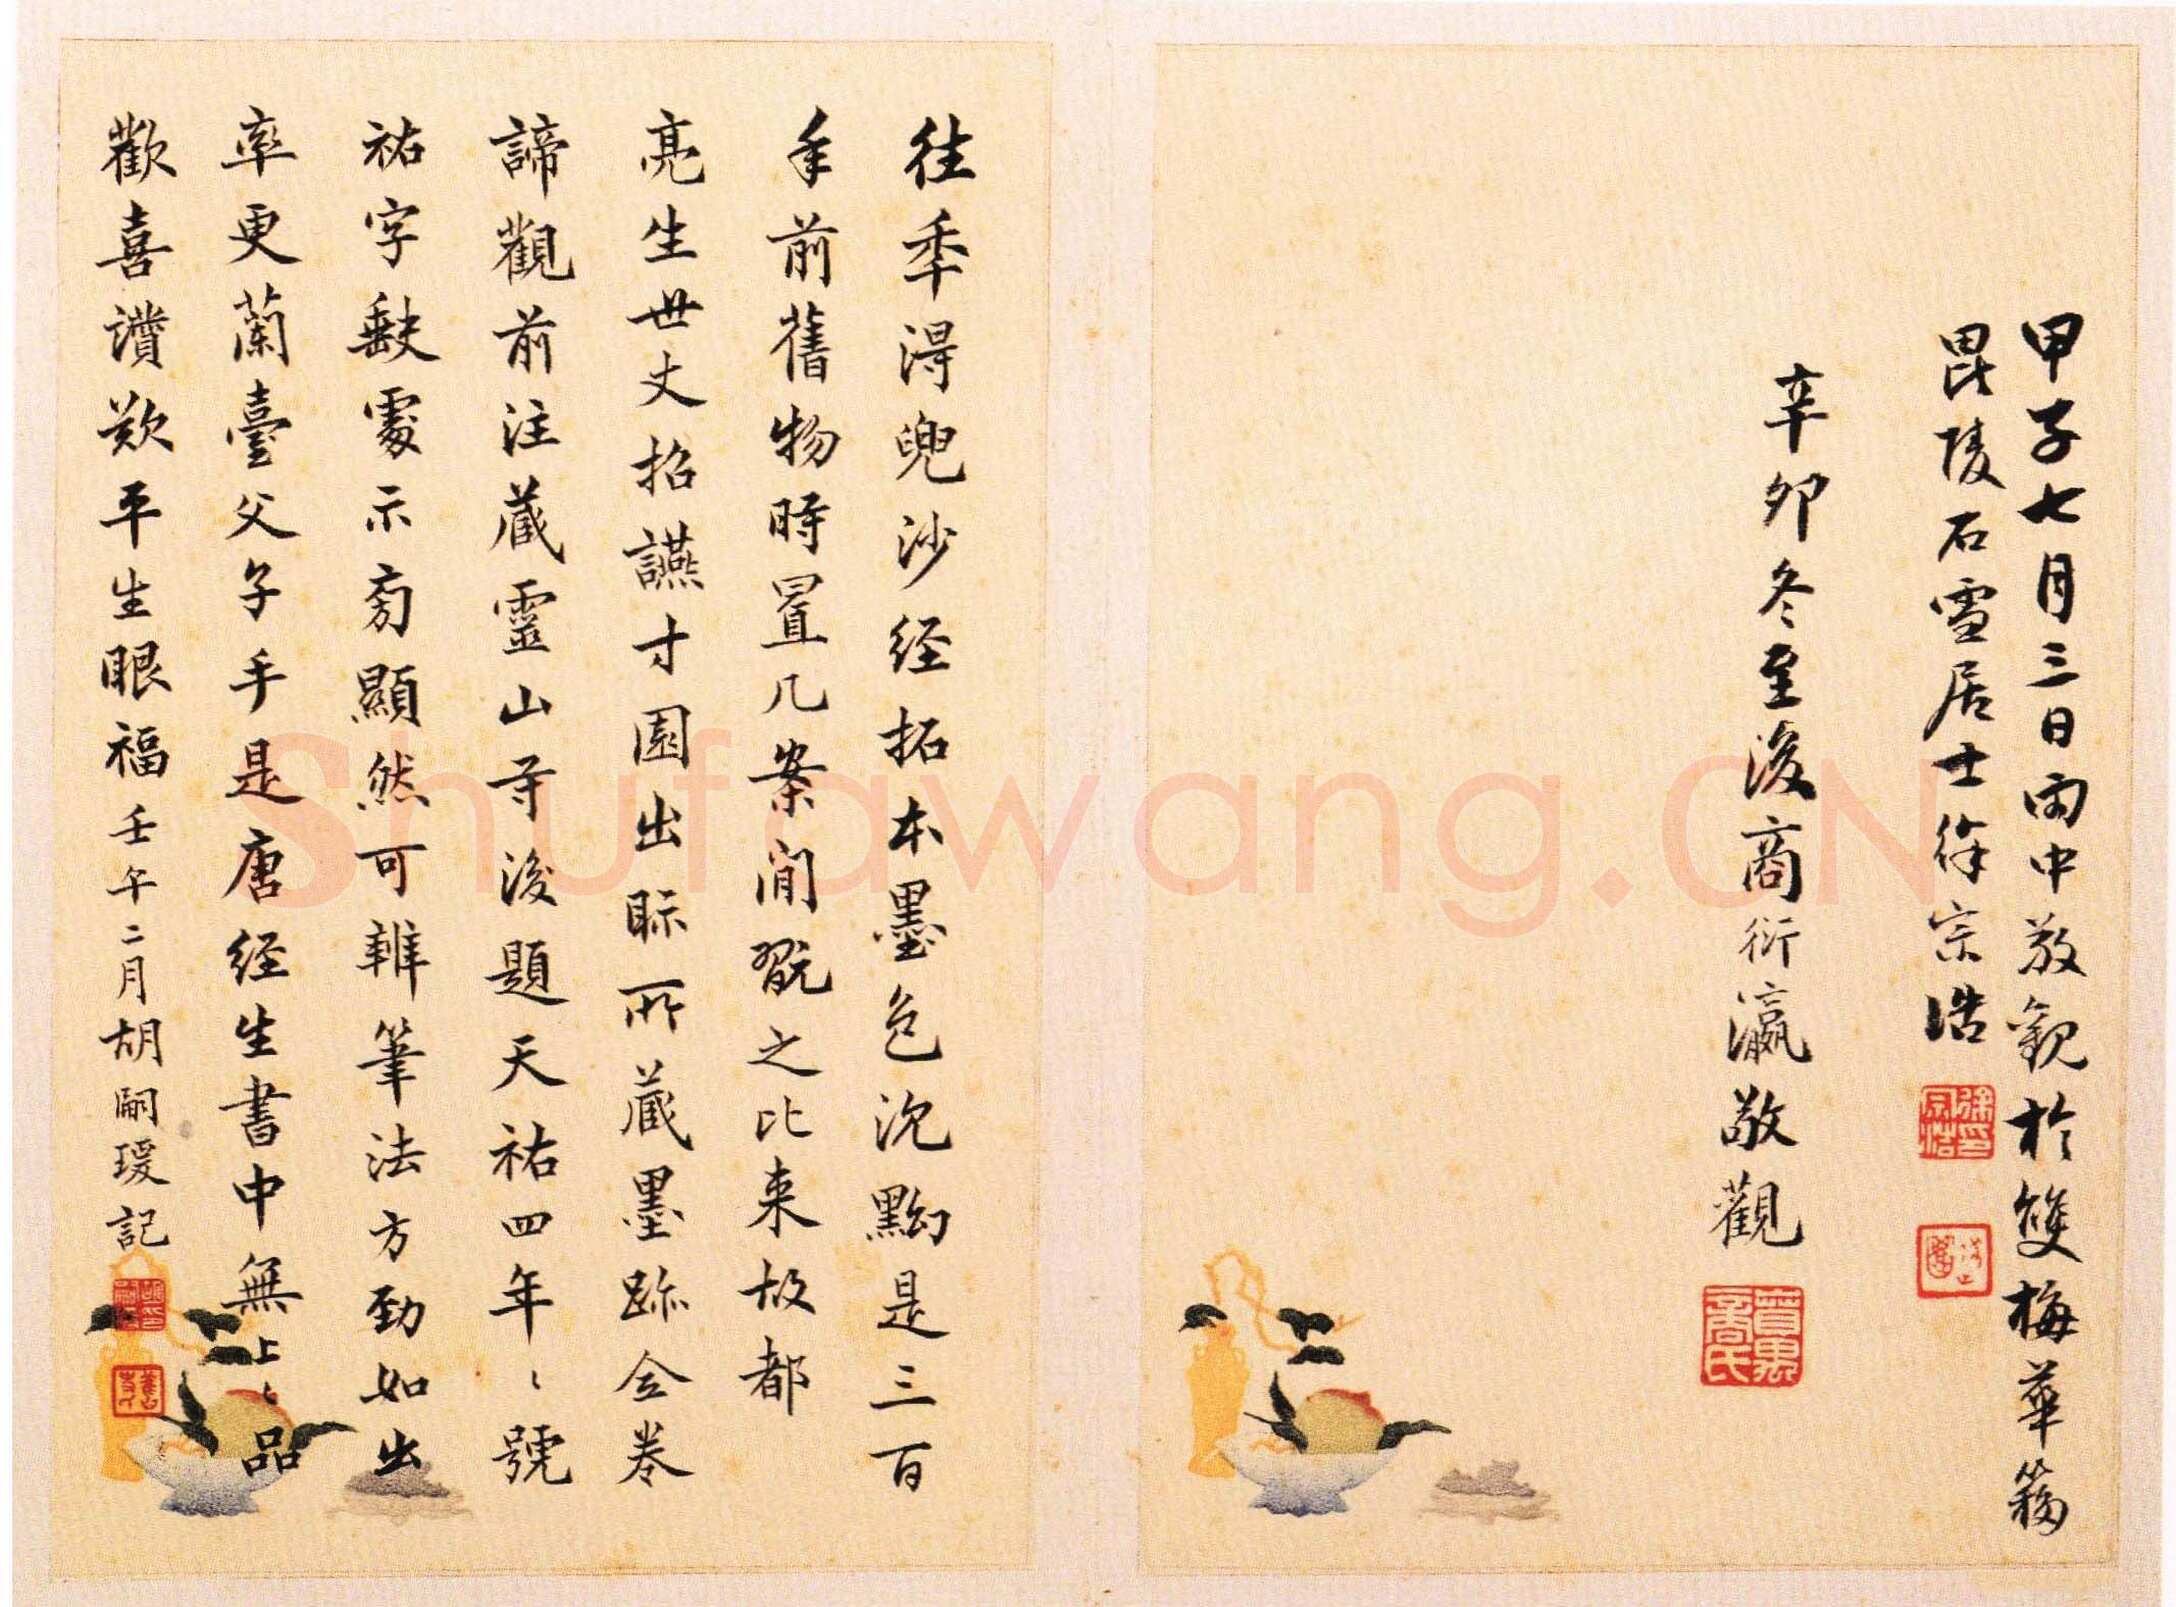 甲子七月三日雨中敬觀於雙梅華簃
毘陵石雪居士徐宗浩
辛卯冬至後商衍瀛敬觀
往季淂兜沙经拓本墨色沈黝是三百
年前舊物時置几案閒翫之比来故都
亮生世丈招讌寸園出眎所藏墨跡全卷
諦觀前注藏靈山寺後題天祐四年〻號
祐字缺處示旁顯然可辨筆法方勁如出
率更蘭臺父子手是唐经生書中無上〻品
歡喜讚歎平生眼福壬午二月胡嗣瑗記
Shufawang.CN